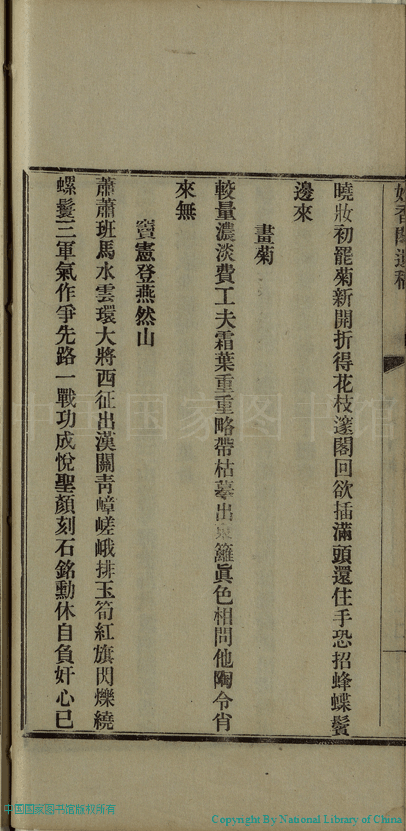 香閣遺稿
曉妝初罷菊新開折得花枝邃閣回欲插滿頭還住手恐招蜂蝶鬢
邊來
畫菊
較量濃淡費工夫霜葉重重略帶枯摹出東籬眞色相問他陶令肖
來無
竇憲登燕然山
蕭蕭班馬水雲環大將西征出漢關靑嶂嵯峨排玉筍紅旗閃爍繞
螺鬟三軍氣作爭先路一戰功成悅聖顏刻石銘勳休自負奸心已
中国国家图书馆
中国国家图书馆版权所有
Copyright By National Library of China